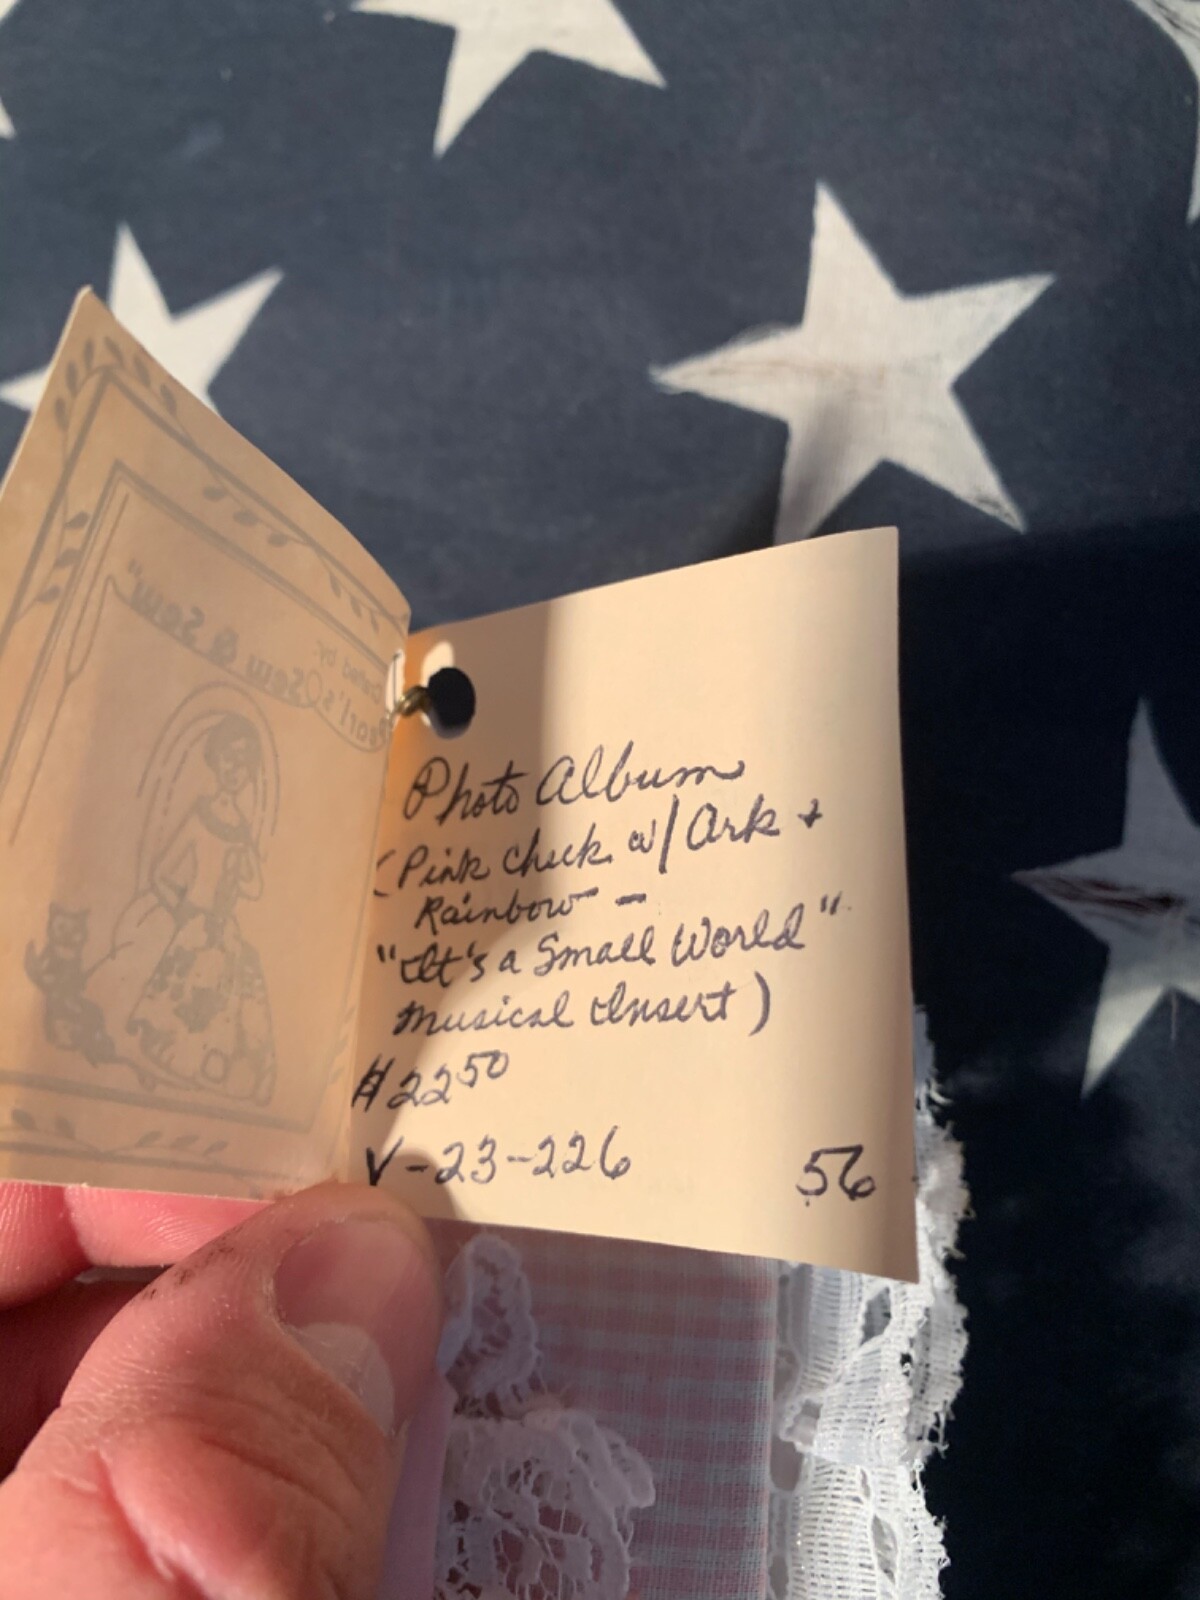 Photo Album
(Pink Check w/ Ark +
Rainbow -
"It's a Small World"
Musical Insert)
$22 50
V-23-226
56
by:
Pearl's
"Sew & Sew"